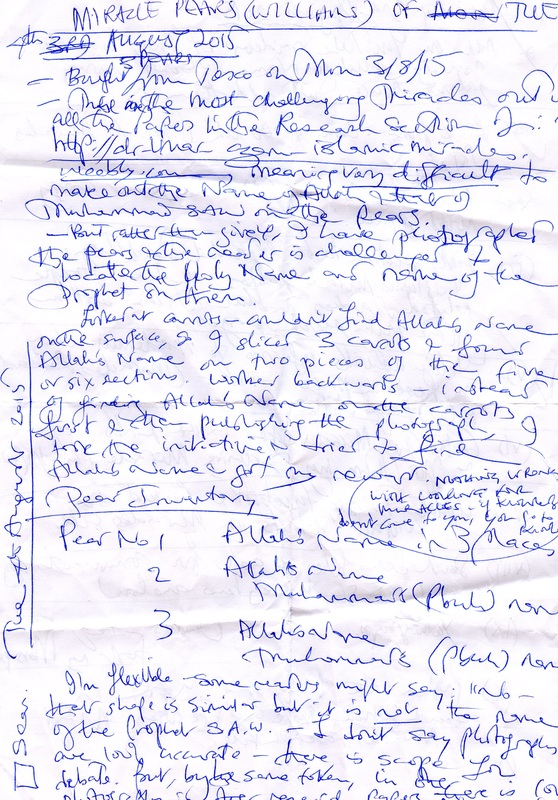 MIRACLE PEARS (WILLIAMS) OF TUE
4th AUGUST 2015
3 PEARS
- Bought from Tesco on Mon 3/8/15
- These are the most challenging miracles out of
all the Papers in the Research Section of:
http://dr-umar-azam-islamic-miracles.
weebly.com, meaning very difficult to
make out the Name of Allah & that of
Muhammad SAW on the Pears
- But rather than give up, I have photographed
the pears & the reader is challenged to
locate the Holy Name and name of the
Prophet on them.
Looked at carrots - couldn't find Allah's Name
on the surface, so I sliced 3 carrots & found
Allah's Name on two pieces of the five
or six sections. Worked backwards - instead
of finding Allah's Name on the carrots
first & then publishing the photograph, I
took the initiative & tried to find
Allah's Name & got my reward.
NOTHING WRONG
WITH LOOKING FOR
MIRACLES - if knowledge
doesn't come to you, you go to
Pear Inventory
Pear No 1 Allah's Name in 3 Places
2 Allah's Name
Muhammad's (Pbuh) name
3 Allah's Name
Muhammad's (Pbuh) name
I'm flexible - some readers might say:
that shape is similar but it is not the name
of the Prophet S.A.W. - I don't say photographs
are 100% accurate - there is scope for
debate. But, by the same token, in the
research papers there is
Tue 4th August 2015
Scan.